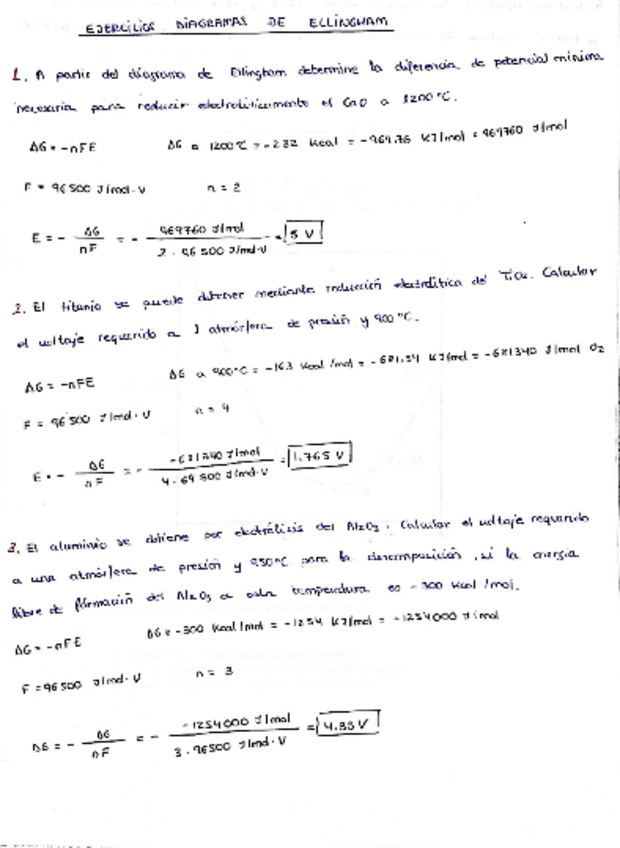 EJERCICIOS DIAGRAMAS DE ELLINGHAM
1. A partir del diagrama de Ellingham determine la diferencia de potencial mínima
necesaria para reducir electrolíticamente el CaO a 1200°C.
ΔG = -nFE ΔG a 1200°C = -232 Kcal = -969.76 KJ/mol = 969760 J/mol
F = 96500 J/mol·V n = 2
E = - ΔG/nF = - 969760 J/mol / 2 · 96500 J/mol·V = 5 V
2. El titanio se puede obtener mediante reducción electrolítica del TiO2. Calcular
el voltaje requerido a 1 atmósfera de presión y 900°C.
ΔG = -nFE ΔG a 900°C = -163 Kcal/mol = -681.34 KJ/mol = -681340 J/mol O2
F = 96500 J/mol·V n = 4
E = - ΔG/nF = - -681340 J/mol / 4 · 69500 J/mol·V = 1.765 V
3. El aluminio se obtiene por electrólisis del Al2O3. Calcular el voltaje requerido
a una atmósfera de presión y 950°C para la descomposición, si la energía
libre de formación del Al2O3 a esta temperatura es -300 Kcal/mol.
ΔG = -nFE ΔG = -300 Kcal/mol = -1254 KJ/mol = -1254000 J/mol
F = 96500 J/mol·V n = 3
ΔG = - ΔG/nF = - -1254000 J/mol / 3 · 96500 J/mol·V = 4.33 V